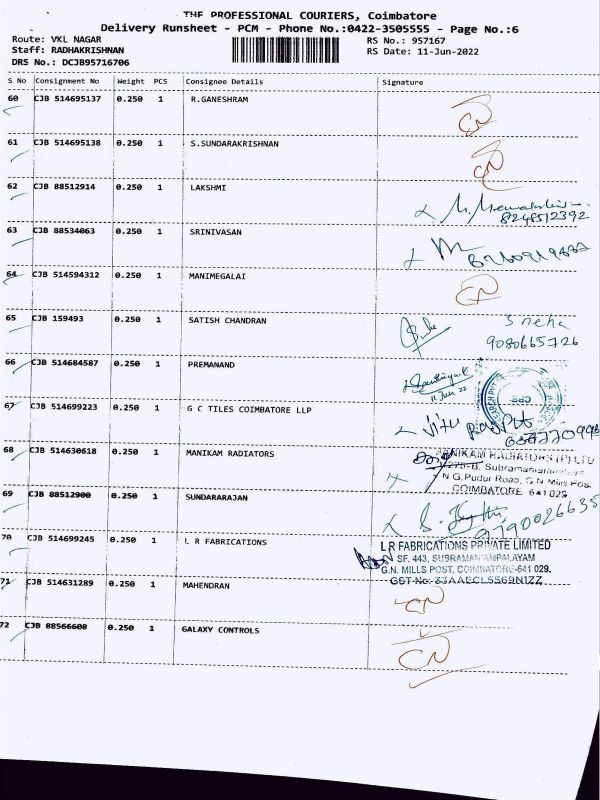 THE PROFESSIONAL COURIERS, Coimbatore
Delivery Runsheet - PCM - Phone No.:0422-3505555 - Page No.:6
Route: VKL NAGAR
RS No.: 957167
Staff: RADHAKRISHNAN
RS Date: 11-Jun-2022
DRS No.: DCJB95716706
S No Consignment No Weight PCS Consignee Details Signature
60 CJB 514695137 0.250 1 R.GANESHRAM
CN
61 CJB 514695138 0.250 1 S.SUNDARAKRISHNAN
CN
62 CJB 88512914 0.250 1 LAKSHMI
8248512392
63 CJB 88534063 0.250 1 SRINIVASAN
64 CJB 514594312 0.250 1 MANIMEGALAI
CN
65 CJB 159493 0.250 1 SATISH CHANDRAN
Sneha
9080665726
66 CJB 514684587 0.250 1 PREMANAND
11 Jun 22
67 CJB 514699223 0.250 1 G C TILES COIMBATORE LLP
68 CJB 514630618 0.250 1 MANIKAM RADIATORS
MANIKAM RADIATORS (P) LTD
N.G.Pudur Road, G N Mills Pos.
COIMBATORE 641 029
69 CJB 88512900 0.250 1 SUNDARARAJAN
9790026635
70 CJB 514699245 0.250 1 L R FABRICATIONS
L R FABRICATIONS PRIVATE LIMITED
SF. 443, SUBRAMANIAMPALAYAM
G.N. MILLS POST, COIMBATORE-641 029.
GST No: 33AAECL5569N1ZZ
71 CJB 514631289 0.250 1 MAHENDRAN
CN
72 CJB 88566608 0.250 1 GALAXY CONTROLS
CN